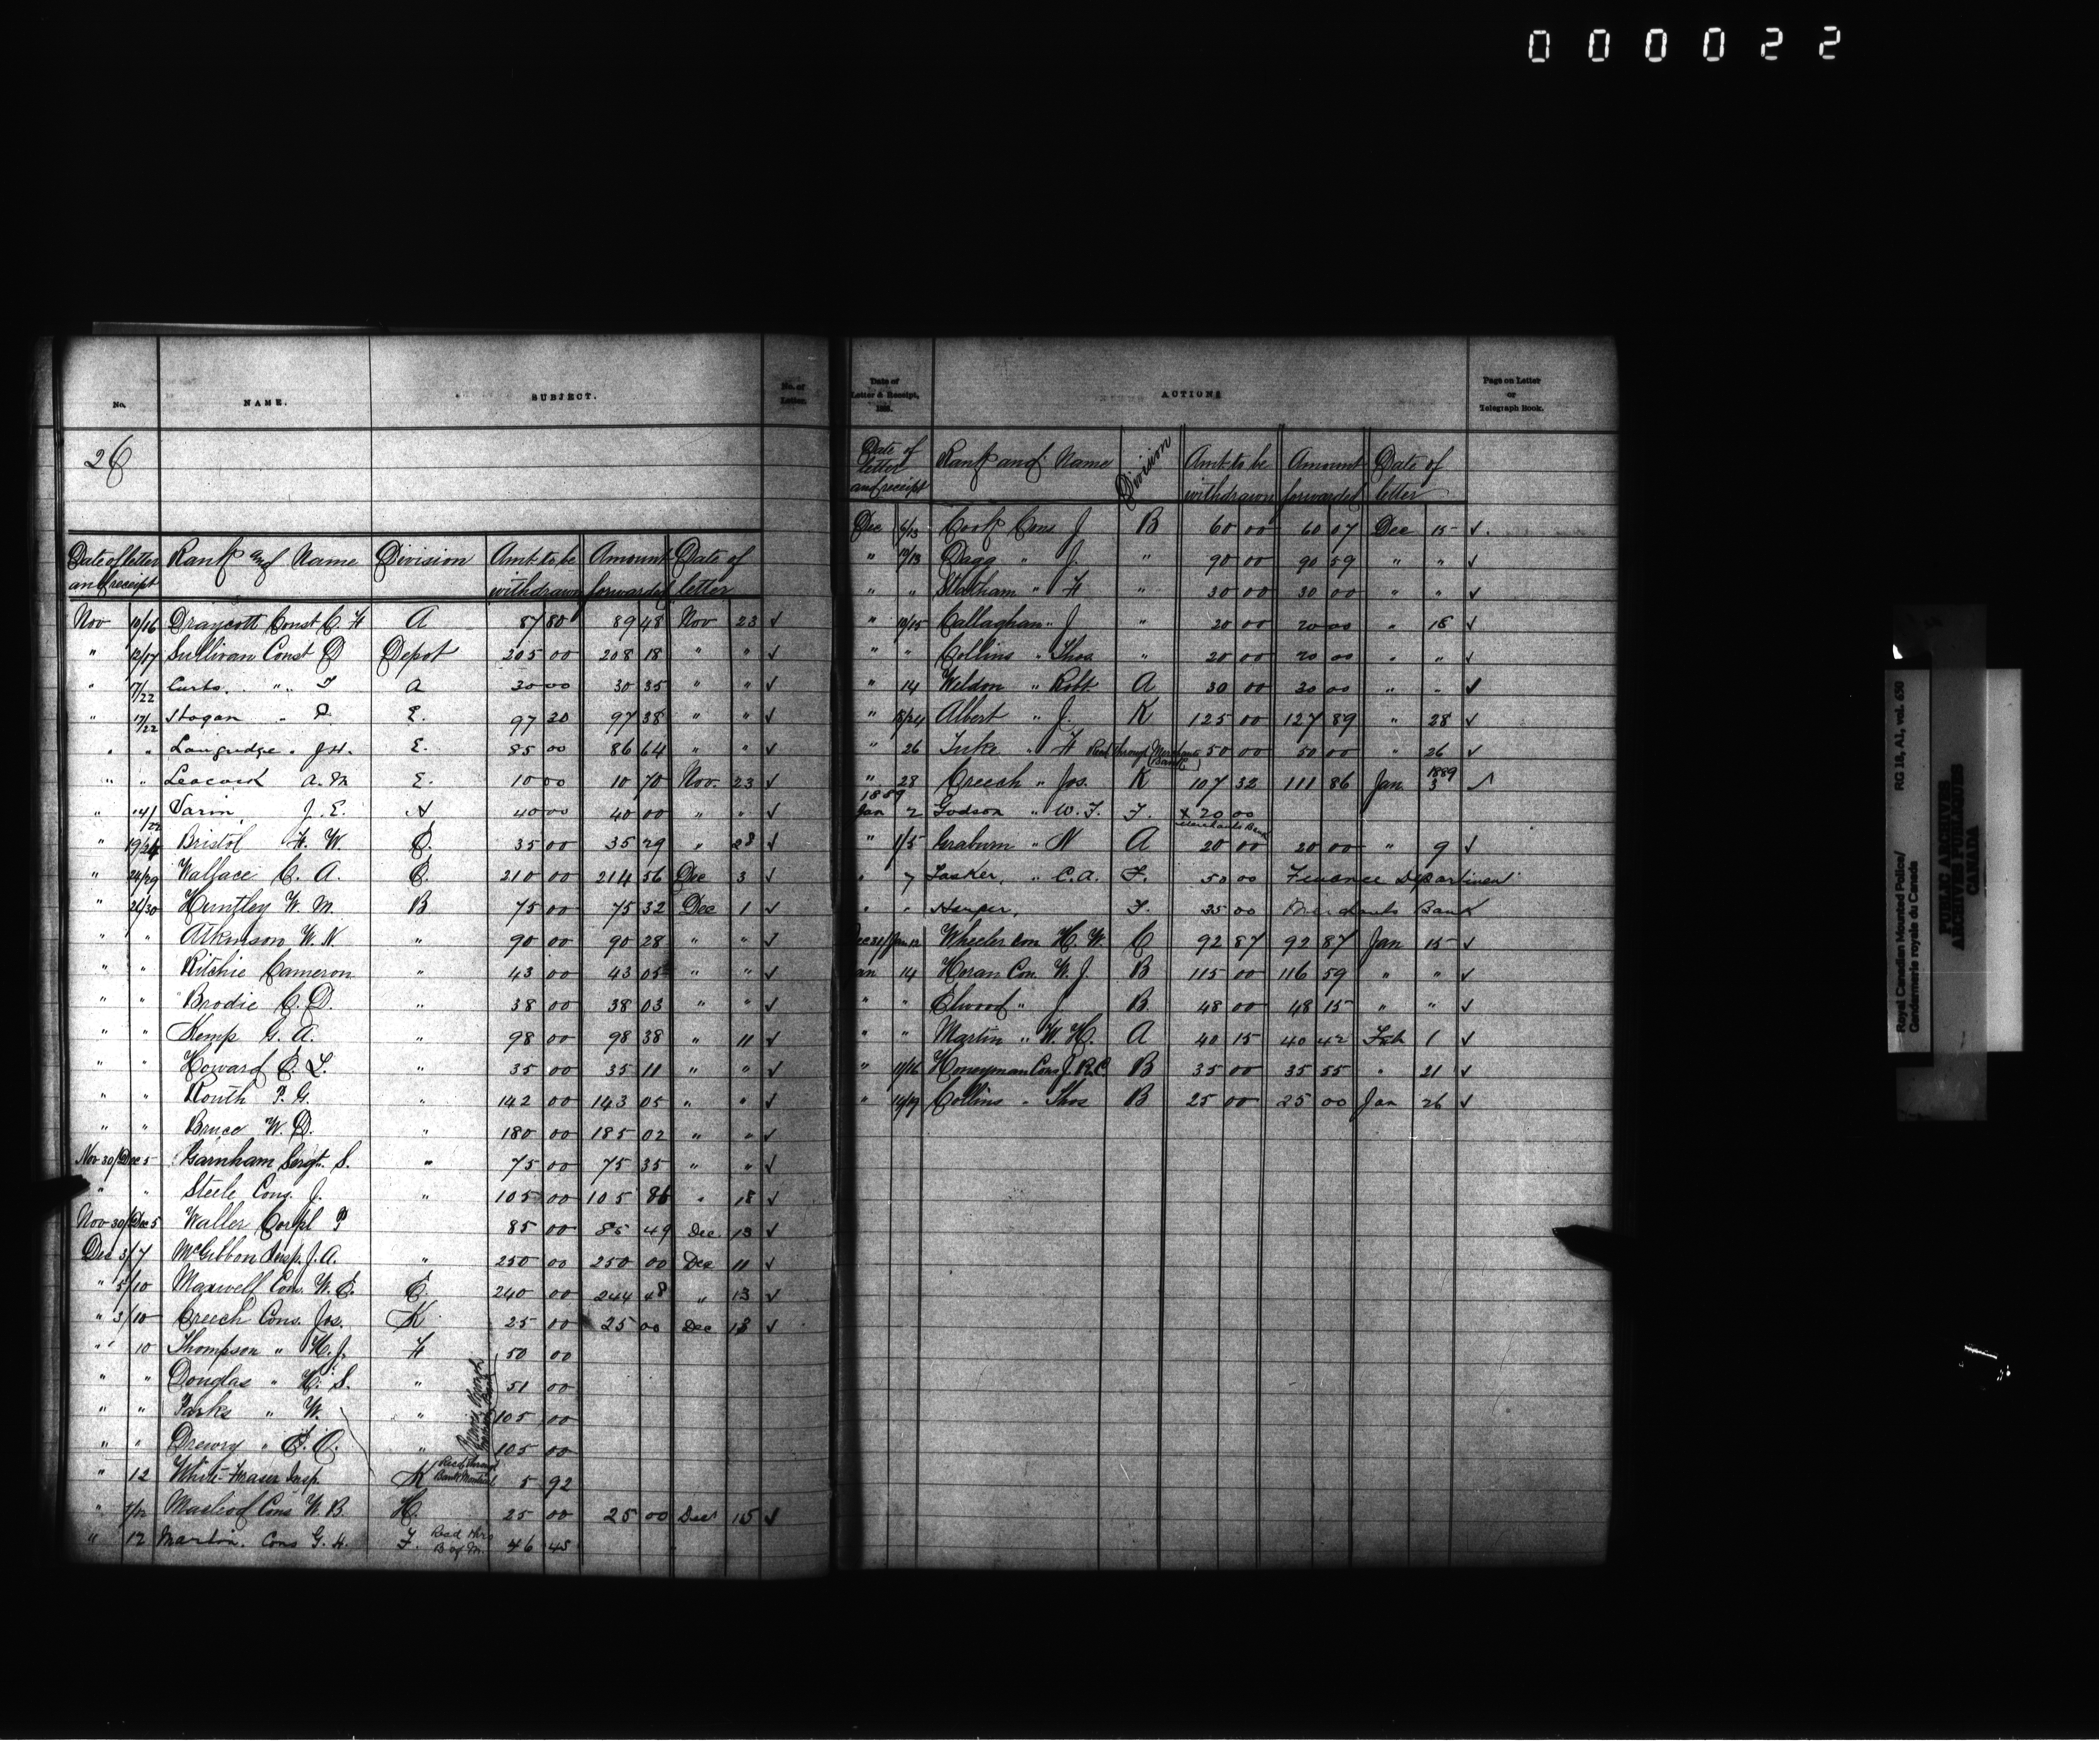 000022
No. NAME. SUBJECT. No. of Letter.
26
Date of letter and receipt Rank and Name Division Amt to be withdrawn Amount forwarded Date of letter
Nov 10/16 Draycott Const C H A 87 80 89 48 Nov 23 ✓
" 12/17 Sullivan Const D Depot 205 00 208 18 " " ✓
" 17/22 Curts. " " T A 30 00 30 35 " " ✓
" 17/22 Hogan " P. E. 97 20 97 38 " " ✓
" " Langridge " J H. E. 85 00 86 64 " " ✓
" " Leacock A. M E. 10 00 10 70 Nov. 23 ✓
" 14/22 J. E. A 40 00 40 00 " " ✓
" 19/24 Bristol H. W. E. 35 00 35 29 " 28 ✓
" 24/29 Wallace C. A. E. 210 00 214 56 Dec 3 ✓
" 26/30 Huntley W. M. B 75 00 75 32 Dec 1 ✓
" " Atkinson W. N. " 90 00 90 28 " " ✓
" " Ritchie Cameron " 43 00 43 05 " " ✓
" " Brodie C. D. " 38 00 38 03 " " ✓
" " Kemp G. A. " 98 00 98 38 " 11 ✓
" " Howard E. L. " 35 00 35 11 " " ✓
" " Routh P. G. " 142 00 143 05 " " ✓
" " Bruce W. D. " 180 00 185 02 " " ✓
Nov 30/Dec 5 Barnham Sergt. S. " 75 00 75 35 " " ✓
" " Steele Cons. J. " 105 00 105 86 " 18 ✓
Nov 30/Dec 5 Waller Corpl P 85 00 85 49 Dec. 13 ✓
Dec 3/7 McGibbon Insp. J. A. " 250 00 250 00 Dec 11 ✓
" 5/10 Maxwell Con. W. E. E. 240 00 244 48 " 13 ✓
" 3/10 Creech Cons. Jos. K 25 00 25 00 Dec 13 ✓
" 10 Thompson " H. J. H 50 00
" " Douglas " H. S. " 51 00
" " Parks " W. " 105 00
" " Drewry " " 105 00
" 12 White-Fraser Insp. K Recd through Bank Montreal 5 92
" Macleod Cons W. B. H. 25 00 25 00 Dec 15 ✓
" 12 Martin. Cons G. H. F. Recd thro B of M. 46 45
Date of Letter & Receipt, 188 . ACTION Page on Letter or Telegraph Book.
Date of letter and receipt Rank and Name Division Amt to be withdrawn Amount forwarded Date of letter
Dec 6/13 Cook Cons J B 60 00 60 07 Dec 15 ✓.
" 10/13 Dagg " J. " 90 00 90 59 " " ✓
" " Statham " H " 30 00 30 00 " " ✓
" 10/15 Callaghan " J " 20 00 20 00 " 18 ✓
" " Collins " Thos " 20 00 20 00 " " ✓
" 14 Weldon " Robt A 30 00 30 00 " " ✓
" 18/24 Albert " J. K 125 00 127 89 " 28 ✓
" 26 Tuke " H Recd through Merchants Bank 50 00 50 00 " 26 ✓
" 28 Creech " Jos. K 107 32 111 86 Jan. 1889 3 ✓
1889
Jan 2 Godson " W. F. F. x 20 00 Merchants Bank
" 1/5 Graburn " N A 20 00 20 00 " 9 ✓
" 7 Tasker, " C. A. F. 50 00 Finance Department
" " Harper, F. 35 00 Merchants Bank
Dec 31/Jan 12 Wheeler Con H. W. C 92 87 92 87 Jan 15 ✓
Jan 14 Horan Con. W. J. B 115 00 116 59 " " ✓
" " Elwood " J B. 48 00 48 15 " " ✓
" " Martin " W. H. A 40 15 40 42 Feb 1 ✓
" 11/16 Honeyman Cons J. R. C B 35 00 35 55 " 21 ✓
" 14/19 Collins " Thos B 25 00 25 00 Jan 26 ✓
Royal Canadian Mounted Police/ RG 18, A1, vol. 650
Gendarmerie royale du Canada
PUBLIC ARCHIVES
ARCHIVES PUBLIQUES
CANADA